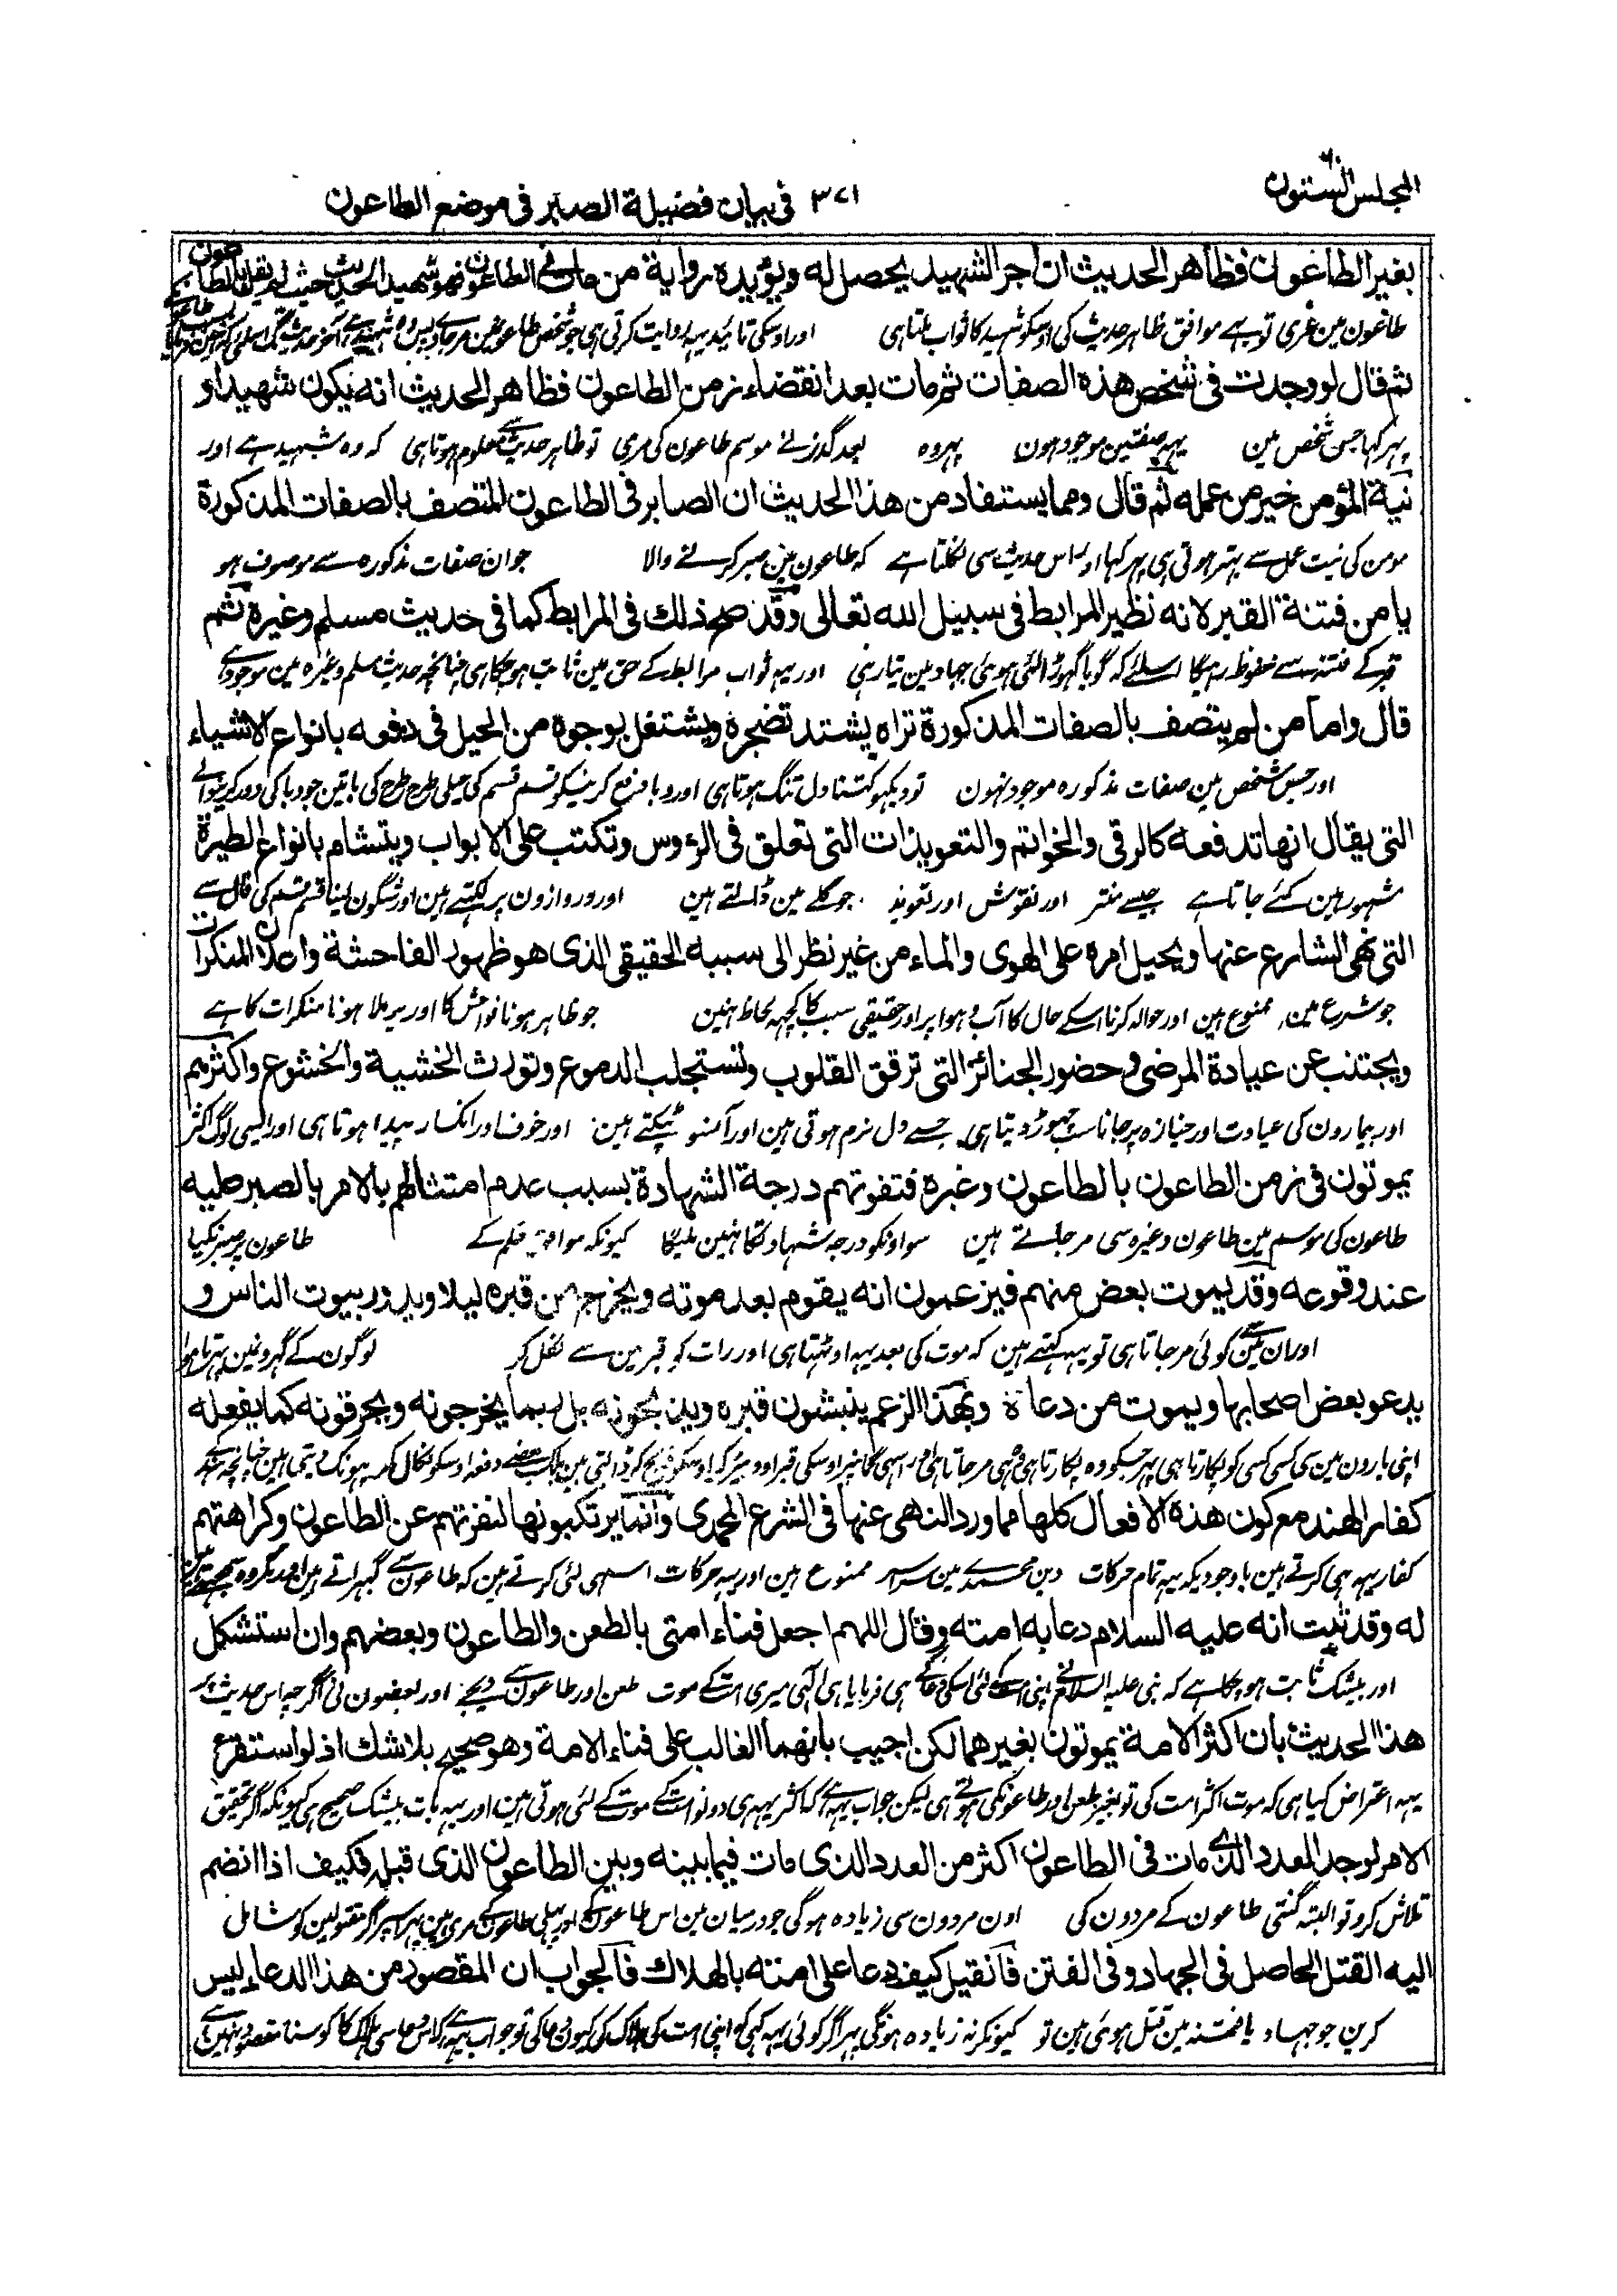 المجلس الستون
٣٧١ في بيان فضيلة الصبر في موضع الطاعون
بغير الطاعون فظاهر الحديث ان اجر الشهيد يحصل له ويؤيده رواية من مات في الطاعون فهو شهيد الحديث حيث لم يقل بالطاعون
طاعون مین مری تو بہے موافق ظاہر حدیث کی اوسکو شہید کا ثواب ملتا ہی اور اوسکی تائید یہہ روایت کرتی ہی جو شخص طاعون مین مرجاوے پس وہ شہید ہے
ثم قال لو وجدت في شخص هذه الصفات ثم مات بعد انقضاء زمن الطاعون فظاهر الحديث انه يكون شهيدا و
پہر کہا جس شخص مین یہہ صفتین موجود ہون پہر وہ بعد گذرنے موسم طاعون کی مری تو ظاہر حدیث سے معلوم ہوتا ہی کہ وہ شہید ہے اور
نية المؤمن خير من عمله ثم قال ومما يستفاد من هذا الحديث ان الصابر في الطاعون المتصف بالصفات المذكورة
مومن کی نیت عمل سے بہتر ہوتی ہی پہر کہا اور اس حدیث سی نکلتا ہے کہ طاعون مین صبر کرنے والا جو ان صفات مذکورہ سے موصوف ہو
يامن فتنة القبر لانه نظير المرابط في سبيل الله تعالى وقد صح ذلك في المرابط كما في حديث مسلم وغيره ثم
قبر کے فتنہ سے محفوظ رہیگا اسلئے کہ گویا گہوڑا لئی ہوئی جہاد مین تیار ہی اور یہہ ثواب مرابط کے حق مین ثابت ہوچکا ہی چنانچہ حدیث مسلم وغیرہ مین موجود ہے
قال واما من لم يتصف بالصفات المذكورة تراه يشتد تضجره ويشتغل بوجوه من الحيل في دفعه بانواع الاشياء
اور جس شخص مین صفات مذکورہ موجود نہون تو دیکہو کتنا دل تنگ ہوتا ہی اور وبا دفع کرنیکو قسم قسم کی حیلی طرح طرح کی باتین جو وبا کی دور کرنیوالے
التي يقال انها تدفعه كالرقى والخواتم والتعويذات التي تعلق في الرؤس وتكتب على الابواب ويتشام بانواع الطيرة
مشہور ہین کئے جاتا ہے جیسے منتر اور نقوش اور تعویذ جو گلے مین ڈالتے ہین اور دروازون پر لکہتے ہین اور شگون لینا قسم قسم کی فال سے
التي نهى الشارع عنها ويحيل امره على الهوى والماء من غير نظر الى سببه الحقيقي الذي هو ظهور الفاحشة واعلان المنكرات
جو شرع مین ممنوع ہین اور حوالہ کرنا اسکے حال کا آب و ہوا پر اور حقیقی سبب کا کچہہ لحاظ نہین جو ظاہر ہونا فواحش کا اور برملا ہونا منکرات کا ہے
ويجتنب عن عيادة المرضى وحضور الجنائز التي ترقق القلوب وتستجلب الدموع وتورث الخشية والخشوع واكثرهم
اور بیمارون کی عیادت اور جنازہ پر جانا سب چہوڑ دیتا ہی جسے دل نرم ہوتی ہین اور آنسو ٹپکتے ہین اور خوف اور انکسار پیدا ہوتا ہی اور ایسی لوگ اکثر
يموتون في زمن الطاعون بالطاعون وغيره فتفوتهم درجة الشهادة بسبب عدم امتثالهم بالامر بالصبر عليه
طاعون کی موسم مین طاعون وغیرہ سی مرجاتے ہین سو اونکو درجہ شہادت کا نہین ملیگا کیونکہ موافق حکم کے طاعون پر صبر نکیا
عند وقوعه وقد يموت بعض منهم فيزعمون انه يقوم بعد موته ويخرج من قبره ليلا ويدور بيوت الناس و
اور ان مین سے کوئی مرجاتا ہی تو یہہ کہتے ہین کہ موت کی بعد یہہ اوٹہتا ہی اور رات کو قبر مین سے نکل کر لوگون کے گہرون مین پہرتا ہوا
يدعو بعض اصحابها ويموت من دعاه وبهذا الزعم ينبشون قبره ويذبحونه بل ربما يخرجونه ويحرقونه كما يفعله
اپنی یارون مین سی کسی کسی کو پکارتا ہی پہر جسکو وہ پکارتا ہی وہی مرجاتا ہی
كفار الهند مع كون هذه الافعال كلها مما ورد النهي عنها في الشرع المحمدي وانما يرتكبونها لنفرتهم عن الطاعون وكراهتهم
کفار یہہ ہی کرتے ہین باوجودیکہ یہہ تمام حرکات دین محمدے مین سراسر ممنوع ہین اور یہہ حرکات اسہی لئی کرتے ہین کہ طاعون سے گہبراتے ہین اور مکروہ سمجہتے ہین
له وقد ثبت انه عليه السلام دعا به امته وقال اللهم اجعل فناء امتي بالطعن والطاعون وبعضهم وان استشكل
اور بیشک ثابت ہوچکا ہے کہ نبی علیہ السلام نے اپنی امت کے لئی اسکی دعا کی ہی فرمایا ہی الہی میری امت کے موت طعن اور طاعون سے کیجئے اور بعضون نی اگرچہ اس حدیث پر
هذا الحديث بان اكثر الامة يموتون بغيرهما لكن اجيب بانهما الغالب على فناء الامة وهو صحيح بلا شك اذ لو استقرع
یہہ اعتراض کیا ہی کہ موت اکثر امت کی تو بغیر طعن اور طاعون کی ہوتے ہی لیکن جواب یہہ ہے کہ اکثر یہہ ہی دونو امت کے موت کے لئی ہوتی ہین اور یہہ بات بیشک صحیح ہی کیونکہ اگر تحقیق
الامر لوجد العدد الذي مات في الطاعون اكثر من العدد الذي مات فيما بينه وبين الطاعون الذي قبله فكيف اذا انضم
تلاش کرو تو البتہ گنتی طاعون کے مردون کی اون مردون سی زیادہ ہوگی جو درمیان مین اس طاعون کے اور پہلی طاعون کے مری ہین پہر اسپر اگر مقتولین کو شامل
اليه القتل الحاصل في الجهاد وفي الفتن فان قيل كيف دعا على امته بالهلاك فالجواب ان المقصود من هذا الدعاء ليس
کرین جو جہاد یا فتنہ مین قتل ہوئی ہین تو کیونکر نہ زیادہ ہونگی پہر اگر کوئی یہہ کہی کہ اپنی امت کی ہلاک کی کیون دعا کی تو جواب یہہ ہے کہ اس دعا سی ہلاک کا کوسنا مقصود نہین ہے